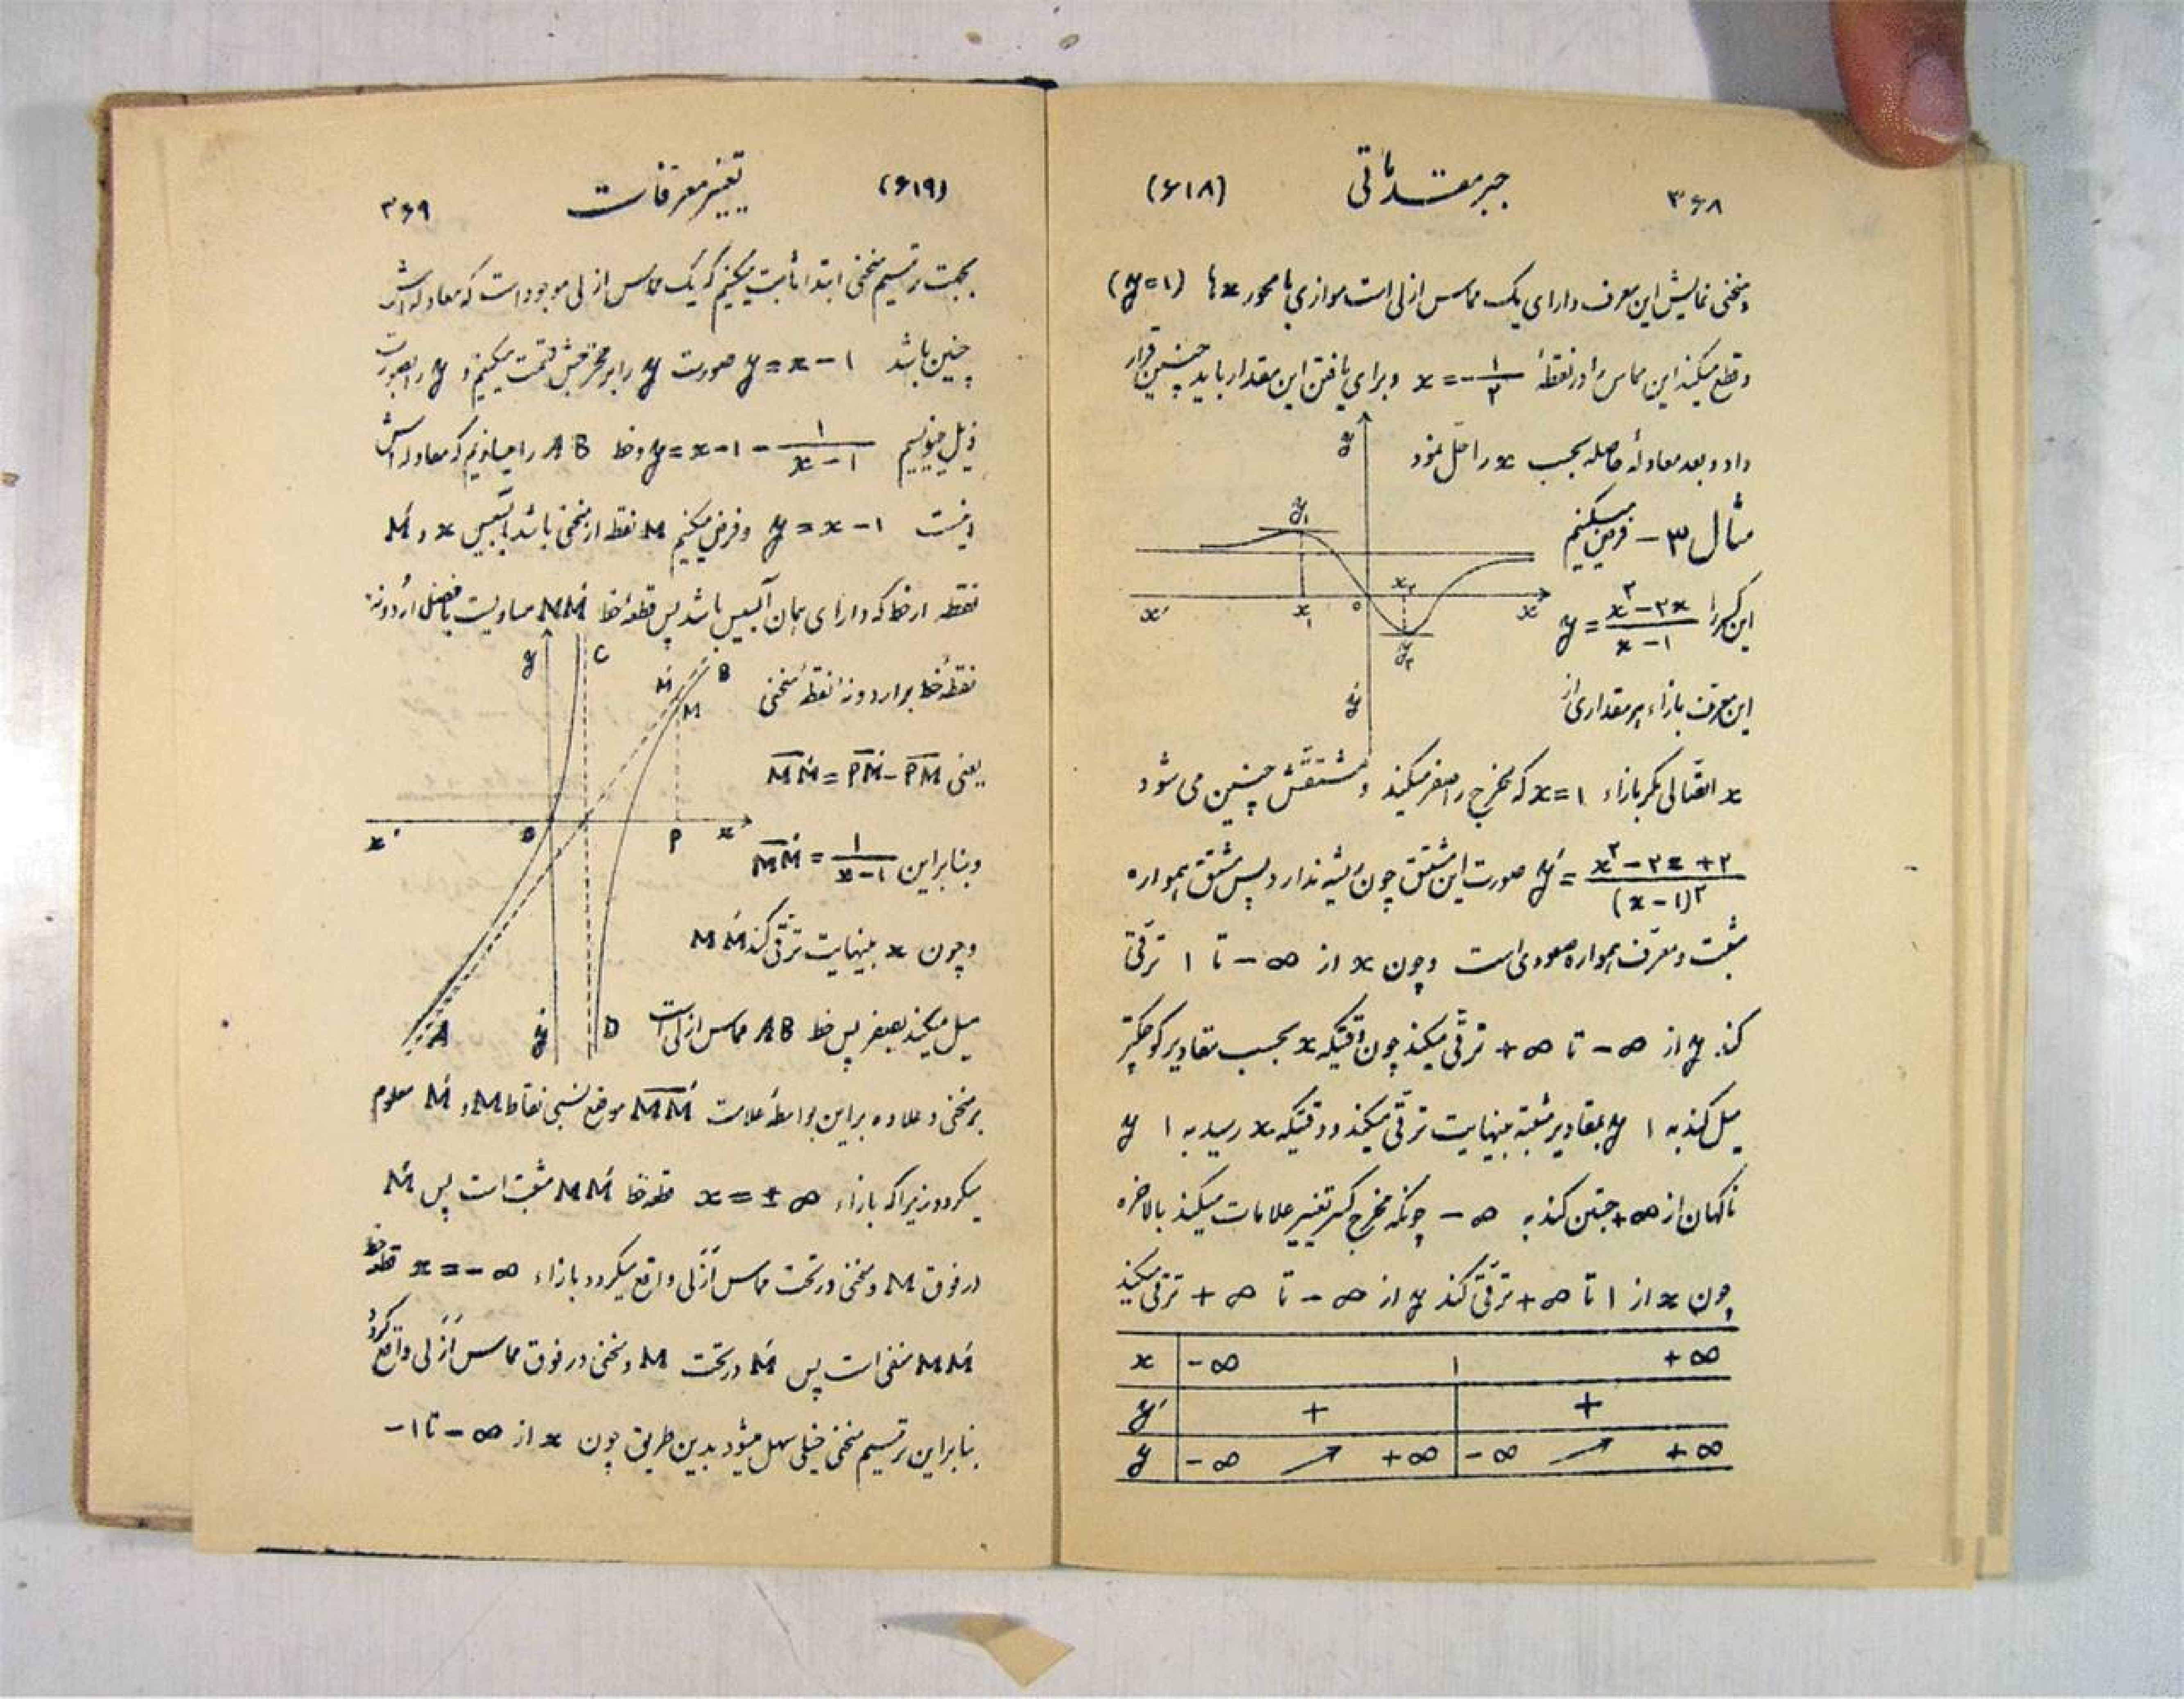 ۳۶۸ جبر مقدماتی (۶۱۸)
و منحنی نمایش این معرف دارای یک مماس ازلی است موازی با محور x ها (y=۱)
و قطع میکند این مماس را در نقطهٔ x=-۱/۲ و برای یافتن این مقدار باید چنین قرار
داد و بعد معادلهٔ حاصله بحسب x را حل نمود
مثال ۳ - فرض میکنیم
این کسر را y = (x²-۲x)/(x-۱)
این معرف بازاء هر مقداری از
y
y₁
x' x₁ o x₂ x
y₂
y'
x اتصالی مگر بازاء x=۱ که مخرج را صفر میکند و مشتقش چنین می شود
y' = (x²-۲x+۲)/(x-۱)² صورت این مشتق چون ریشه ندارد پس مشتق همواره
مثبت و معرف همواره صعودی است و چون x از -∞ تا ۱ ترقی
کند y از -∞ تا +∞ ترقی میکند چون وقتیکه x بحسب مقادیر کوچکتر
میل کند به ۱ y بمقادیر مثبته بینهایت ترقی میکند و وقتیکه x رسید به ۱ y
ناگهان از +∞ جستن کند به -∞ چونکه مخرج کسر تغییر علامات میکند بالاخره
چون x از ۱ تا +∞ ترقی کند y از -∞ تا +∞ ترقی میکند
x | -∞ ۱ +∞
y' | + | +
y | -∞ ↗ +∞ | -∞ ↗ +∞
(۶۱۹) تغییر معرفات ۳۶۹
بجهت ترسیم منحنی ابتدا ثابت میکنیم که یک مماس ازلی موجود است که معادله اش
چنین باشد y=x-۱ صورت y را بر مخرجش قسمت میکنیم و y را بصورت
ذیل مینویسیم y=x-۱-۱/(x-۱) و خط AB را میسازیم که معادله اش
اینست y=x-۱ و فرض میکنیم M نقطه از منحنی باشد بآبسیس x و M'
نقطه از خط که دارای همان آبسیس باشد پس قطعهٔ خط MM' مساویست با فضل اردونهٔ
نقطهٔ خط بر اردونهٔ نقطهٔ منحنی
یعنی MM' = PM' - PM
و بنابراین MM' = ۱/(x-۱)
و چون x بینهایت ترقی کند MM'
میل میکند بصفر پس خط AB مماس ازلی است
y C M' B M
x' o P x
A y' D
بر منحنی و علاوه بر این بواسطهٔ علامت MM' موضع نسبی نقاط M و M' معلوم
میگردد زیرا که بازاء x=±∞ قطعه خط MM' مثبت است پس M'
در فوق M و منحنی در تحت مماس ازلی واقع میگردد بازاء x=-∞ قطعه خط
MM' منفی است پس M' در تحت M و منحنی در فوق مماس ازلی واقع گردد
بنابراین ترسیم منحنی خیلی سهل میشود بدین طریق چون x از -∞ تا ۱-